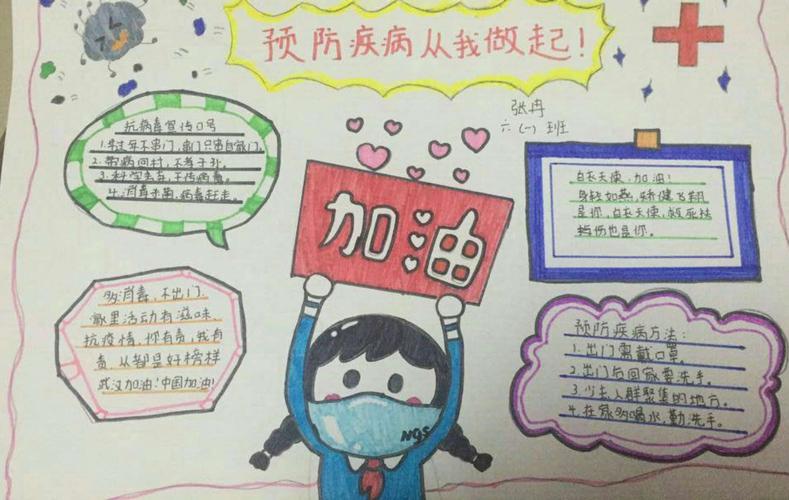 预防疾病从我做起!
张冉
六(一)班
抗病毒宣传口号
1.今过年不串门,串门只串自家门。
2.带病回村,不孝子孙。
3.科学去毒,不传病毒。
4.消毒杀菌,病毒赶走。
白衣天使,加油!
身轻如燕,矫健飞翔
是你,白衣天使,救死扶
伤也是你。
加油
多消毒,不出门.
家里活动有滋味.
抗疫情,你有责,我有
责,人都是好榜样
武汉加油!中国加油!
预防疾病方法:
1.出门需戴口罩。
2.出门后回家要洗手。
3.少去人群聚集的地方。
4.在家多喝水,勤洗手。
NGS